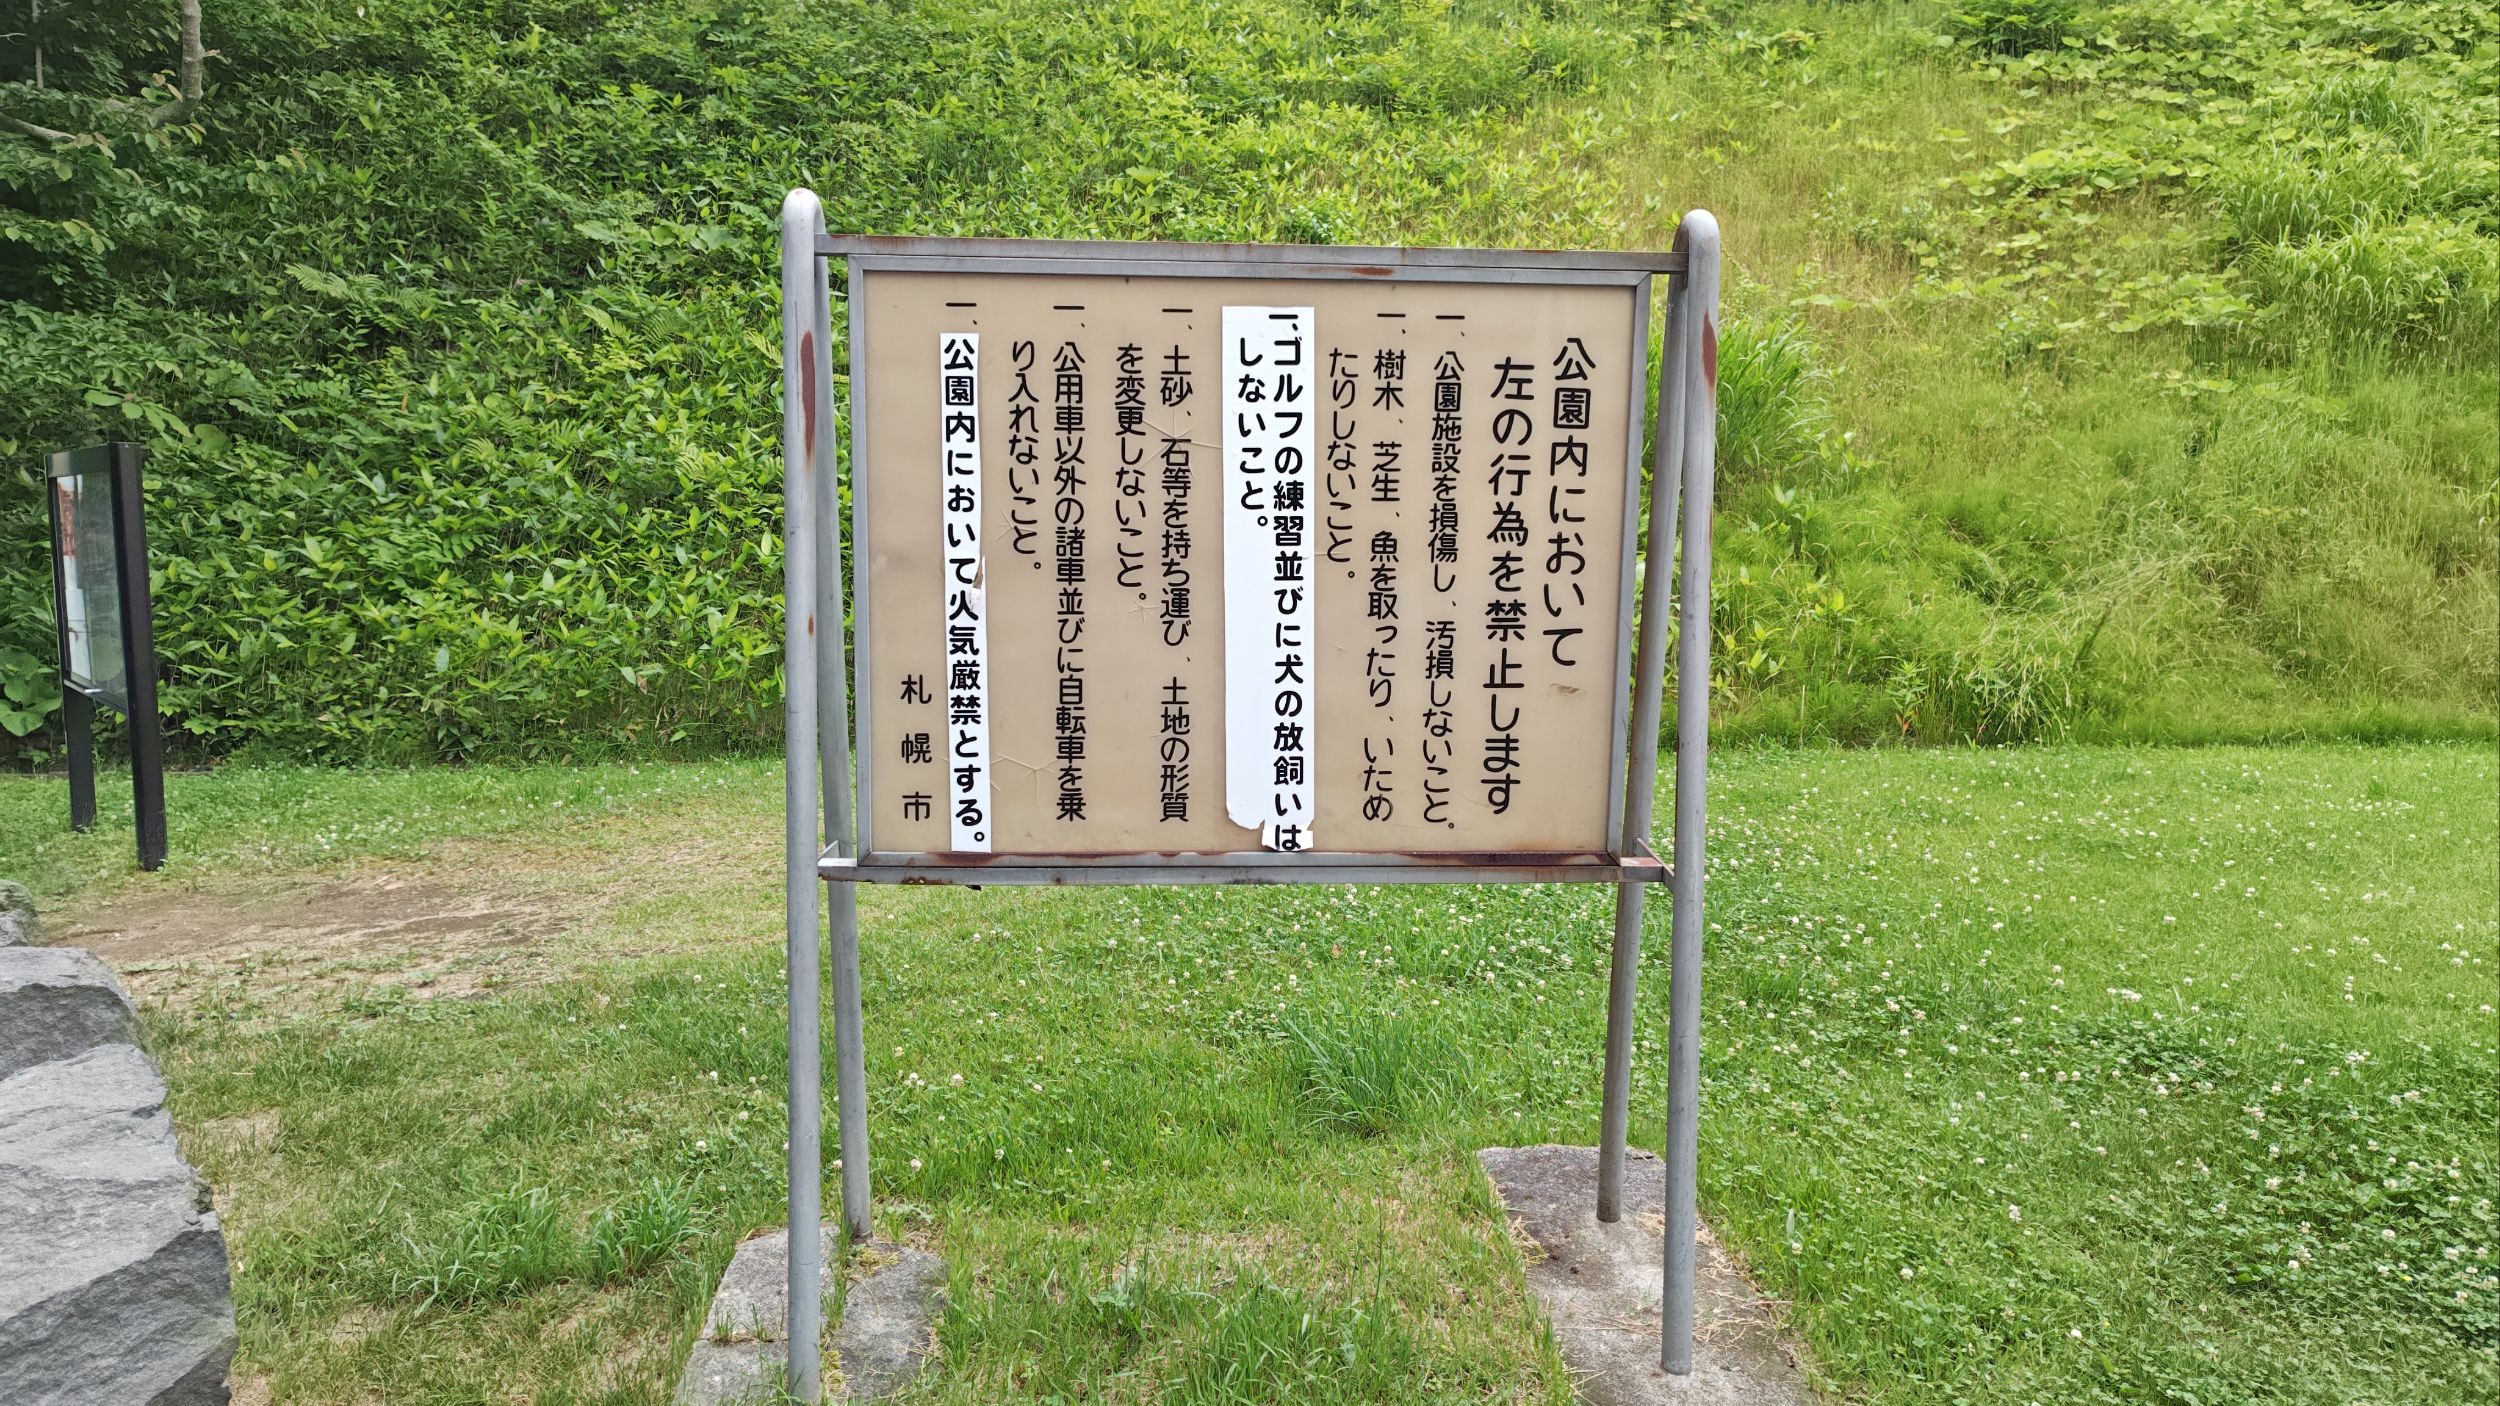 公園内において
左の行為を禁止します
一、公園施設を損傷し、汚損しないこと。
一、樹木、芝生、魚を取ったり、いため
たりしないこと。
一、ゴルフの練習並びに犬の放飼いは
しないこと。
一、土砂、石等を持ち運び、土地の形質
を変更しないこと。
一、公用車以外の諸車並びに自転車を乗
り入れないこと。
一、公園内において火気厳禁とする。
札幌市